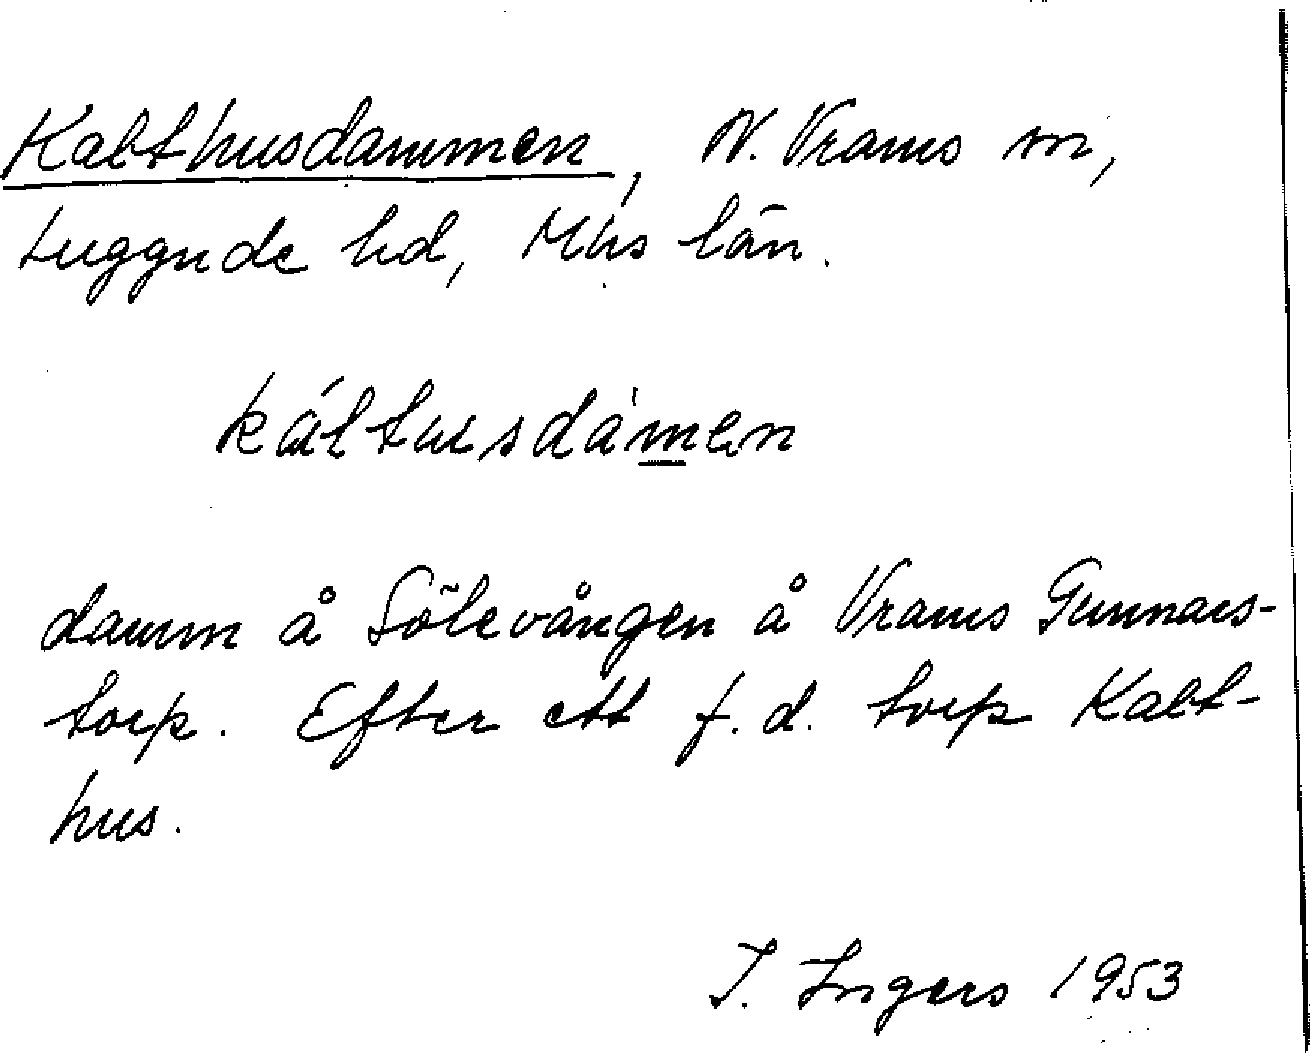 Kalthusdammen, N. Vrams sn,
Luggude hd, Mhs län.
káltusdàmen
damm å Sölevången å Vrams Gunnars-
torp. Efter ett f.d. torp Kalt-
hus.
I. Ingers 1953